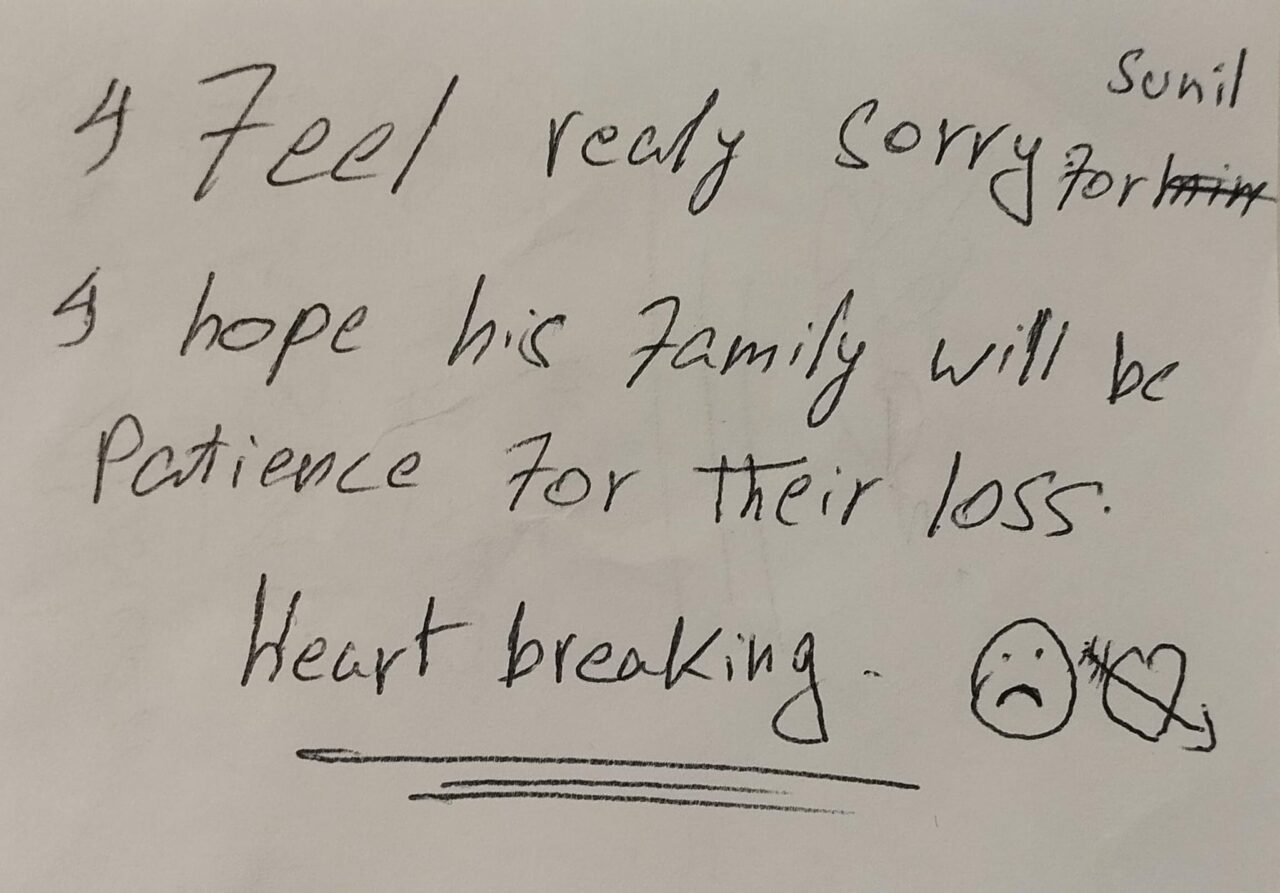 I Feel realy sorry for Sunil
I hope his family will be
Patience for their loss.
Heart breaking.